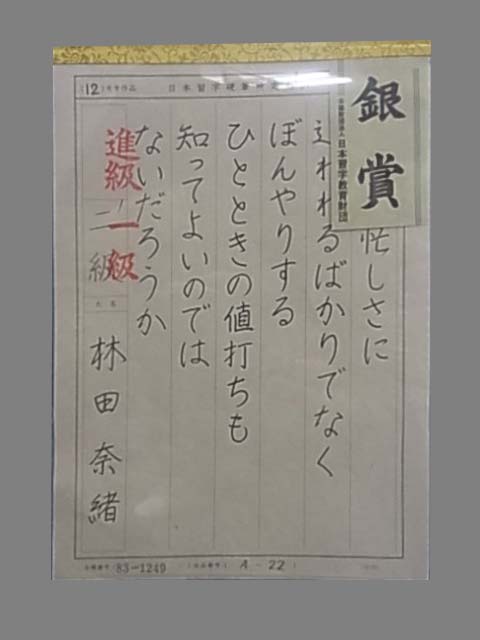 (12)月号作品
日本習字硬筆検定
銀賞
公益財団法人日本習字教育財団
忙しさに
追われるばかりでなく
ぼんやりする
ひとときの値打ちも
知ってよいのでは
ないだろうか
進級一級
二級
氏名
林田奈緒
83-1249
A-22